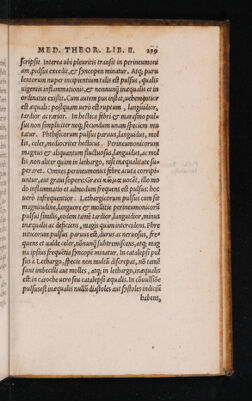 MED. THEOR. LIB. II. 259
scripsit. Interea ubi pleuritis transit in peripneumoni
am, pulsus excelsus, & syncopen minatur. Atq; puru
lentorum nuper incipientium talis est pulsus, qualis
uigentis inflammationis, & nonnunquam inæqualis et in
ordinatus existit. Cum autem pus instat, uehementior
est æquali: postquam uero est ruptum, languidior,
tardior ac rarior. In hectica febri & marasmo pul-
sus non simpliciter neq; secundum unam speciem mu
tatur. Phthisicorum pulsus paruus, languidus, mol
lis, celer, mediocriter hecticus. Peripneumonicorum
magnus & aliquantum fluctuosus, languidus, ac mol
lis non aliter quam in lethargo, nisi inæqualitate su-
peret. Comes peripneumonicis febre acuta corripi-
untur, aut graui sopore: Græci κῶμα uocāt, illo mo
do inflammationis et admodum frequens est pulsus: hoc
uero infrequentior. Lethargicorum pulsus cum sit
magnitudine, languore & mollitie peripneumonicorum
pulsui similis, eodem tamē tardior, languidior, minus
inæqualis ac deficiens, magis quam intercidens. Phre
niticorum pulsus paruus est, durus ac neruosus, fre
quens et ualde celer, nōnunquam subtremiscens, atq; mag
na ipsius frequētia syncopē minatur. In catalepsi pul
sus à Lethargo, specie non multū discrepat, nō tamē
sunt imbecilli aut molles, atq; in lethargo, inæqualis
est: in catoche uero seu catalepsi æqualis. In cōuulsiōe
pulsus est inæqualis nullū diastoles aut systoles indiciū
habens,